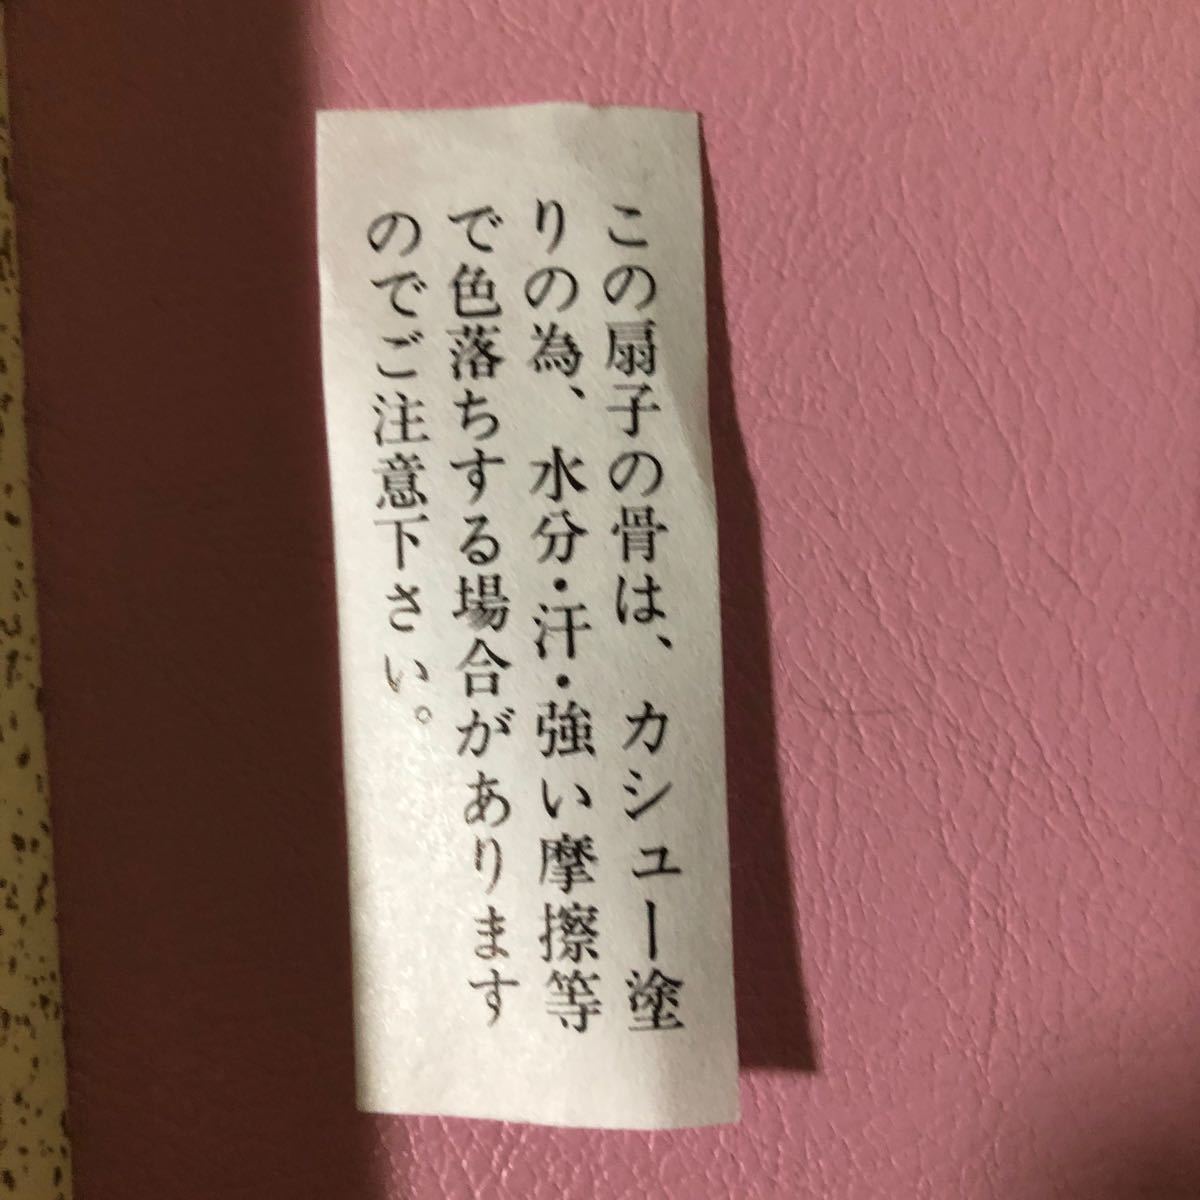 この扇子の骨は、カシュー塗
りの為、水分・汗・強い摩擦等
で色落ちする場合があります
のでご注意下さい。